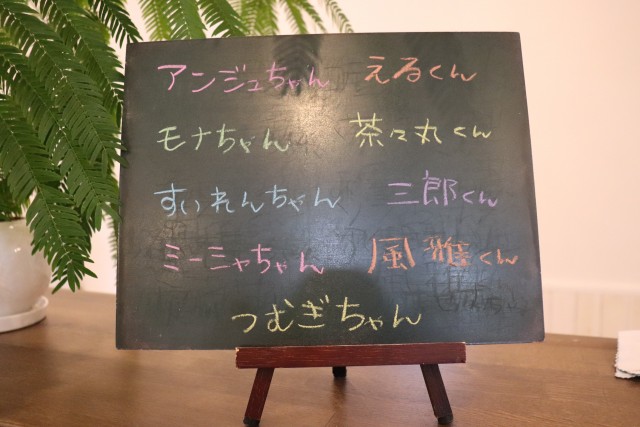 アンジュちゃん えるくん
モナちゃん 茶々丸くん
すいれんちゃん 三郎くん
ミーシャちゃん 風雅くん
つむぎちゃん